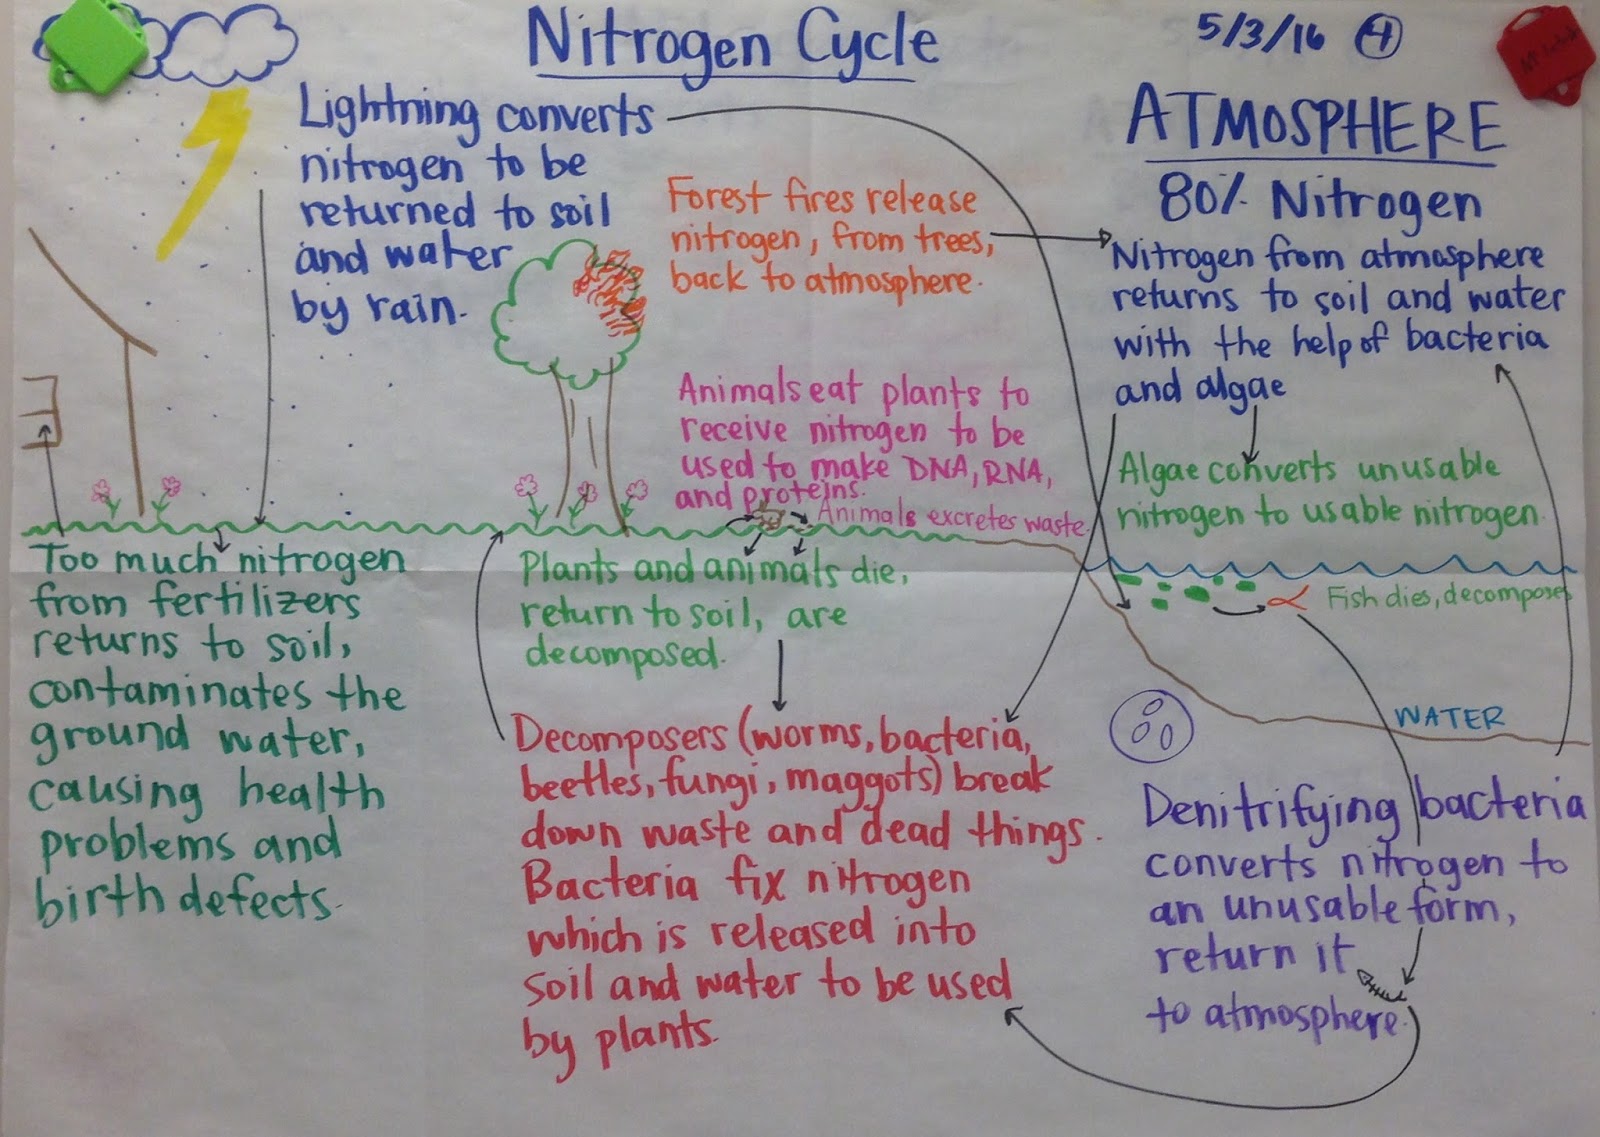 Nitrogen Cycle
5/3/16 4
Lightning converts
nitrogen to be
returned to soil
and water
by rain.
Forest fires release
nitrogen, from trees,
back to atmosphere.
ATMOSPHERE
80% Nitrogen
Nitrogen from atmosphere
returns to soil and water
with the help of bacteria
and algae
Animals eat plants to
receive nitrogen to be
used to make DNA, RNA,
and proteins.
Animals excretes waste.
Algae converts unusable
nitrogen to usable nitrogen.
Too much nitrogen
from fertilizers
returns to soil,
contaminates the
ground water,
causing health
problems and
birth defects.
Plants and animals die,
return to soil, are
decomposed.
Fish dies, decomposes
WATER
Decomposers (worms, bacteria,
beetles, fungi, maggots) break
down waste and dead things.
Bacteria fix nitrogen
which is released into
soil and water to be used
by plants.
Denitrifying bacteria
converts nitrogen to
an unusable form,
return it
to atmosphere.